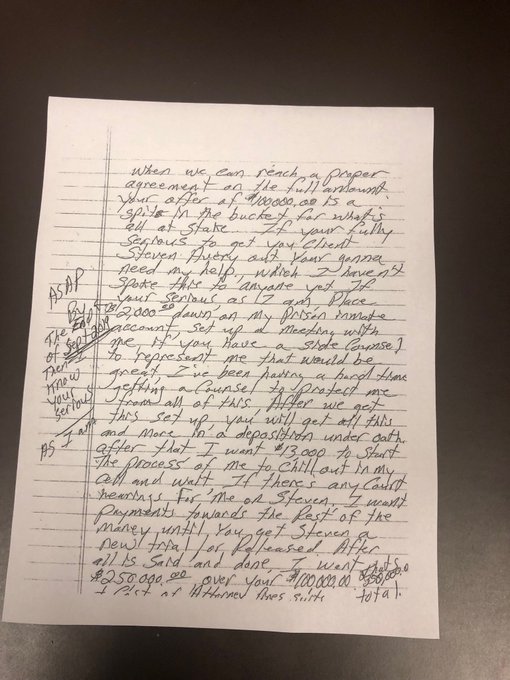 when we can reach a proper
agreement on the full amount
your offer of $100,000.00 is a
spit in the bucket for what's
all at stake. If your fully
serious to get you Client
Steven Avery out your gonna
need my help, which I haven't
spoke this to anyone yet If
your serious as I am, Place
2,000 down on my Prison inmate
account, set up a meeting with
me, if you have a side Counsel
to represent me that would be
great I've been having a hard time
getting a Counsel to protect me
from all of this. After we get
this set up, you will get all this
and more in a deposition under oath.
after that I want $13,000 to start
the process of me to Chill out in my
Cell and wait If there's any Court
hearings For me or Steven, I want
payments towards the Rest of the
money until You get Steven a
new trial or Released. After
all is said and done, I want that's
$250,000.00 over your $100,000.00 350,000.00
total.
+ Cost of Attorney fees
ASAP
By
The End
of Sept 2019
Then I
Know
your
serious
AS I am